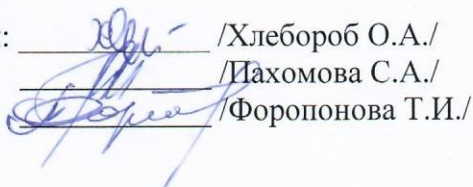 : /Хлебороб О.А./
/Пахомова С.А./
/Форопонова Т.И./